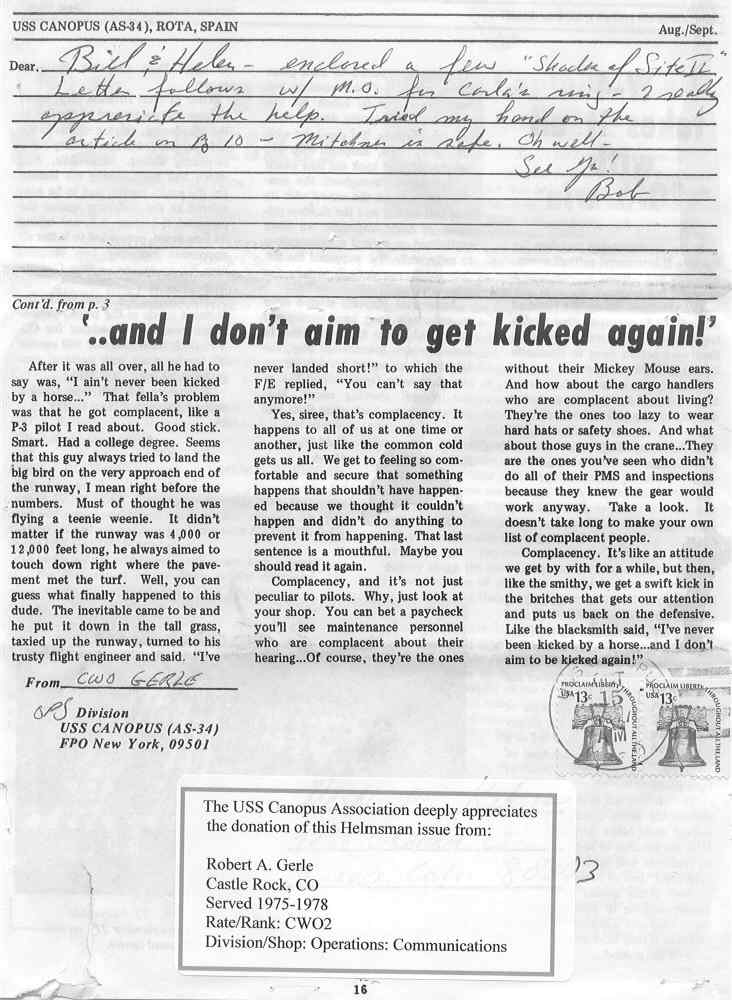 USS CANOPUS (AS-34), ROTA, SPAIN
Aug./Sept.
Dear. Bill & Helen - enclosed a few "Shades of Site II"
Letter follows w/ M.O. for Carla's ring - I really
appreciate the help. Tried my hand on the
article on Pg 10 - Mitchner is safe. Oh well -
See Ya!
Bob
Cont'd. from p. 3
'..and I don't aim to get kicked again!'
After it was all over, all he had to
say was, "I ain't never been kicked
by a horse..." That fella's problem
was that he got complacent, like a
P-3 pilot I read about. Good stick.
Smart. Had a college degree. Seems
that this guy always tried to land the
big bird on the very approach end of
the runway, I mean right before the
numbers. Must of thought he was
flying a teenie weenie. It didn't
matter if the runway was 4,000 or
12,000 feet long, he always aimed to
touch down right where the pave-
ment met the turf. Well, you can
guess what finally happened to this
dude. The inevitable came to be and
he put it down in the tall grass,
taxied up the runway, turned to his
trusty flight engineer and said. "I've
never landed short!" to which the
F/E replied, "You can't say that
anymore!"
Yes, siree, that's complacency. It
happens to all of us at one time or
another, just like the common cold
gets us all. We get to feeling so com-
fortable and secure that something
happens that shouldn't have happen-
ed because we thought it couldn't
happen and didn't do anything to
prevent it from happening. That last
sentence is a mouthful. Maybe you
should read it again.
Complacency, and it's not just
peculiar to pilots. Why, just look at
your shop. You can bet a paycheck
you'll see maintenance personnel
who are complacent about their
hearing...Of course, they're the ones
without their Mickey Mouse ears.
And how about the cargo handlers
who are complacent about living?
They're the ones too lazy to wear
hard hats or safety shoes. And what
about those guys in the crane...They
are the ones you've seen who didn't
do all of their PMS and inspections
because they knew the gear would
work anyway. Take a look. It
doesn't take long to make your own
list of complacent people.
Complacency. It's like an attitude
we get by with for a while, but then,
like the smithy, we get a swift kick in
the britches that gets our attention
and puts us back on the defensive.
Like the blacksmith said, "I've never
been kicked by a horse...and I don't
aim to be kicked again!"
From CWO GERLE
OPS Division
USS CANOPUS (AS-34)
FPO New York, 09501
PROCLAIM LIBERTY THROUGHOUT ALL THE LAND
USA 13c
15
PROCLAIM LIBERTY THROUGHOUT ALL THE LAND
USA 13c
The USS Canopus Association deeply appreciates
the donation of this Helmsman issue from:
Robert A. Gerle
Castle Rock, CO
Served 1975-1978
Rate/Rank: CWO2
Division/Shop: Operations: Communications
16